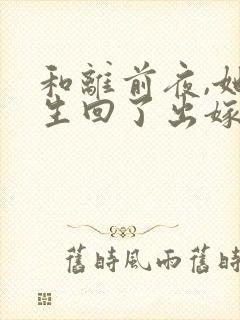 和離前夜,她
生回了出嫁
舊時風雨舊時